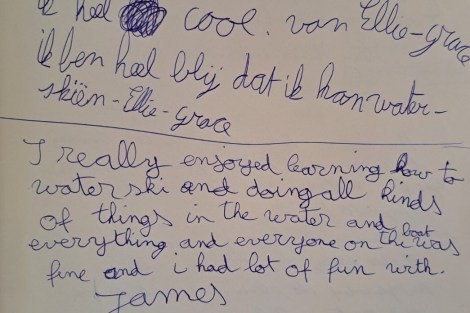 ik heel cool. van Ellie-grace
ik ben heel blij dat ik kan water-
skiën - Ellie-Grace
I really enjoyed learning how to
water ski and doing all kinds
of things in the water and
everything and everyone on the boat was
fine and i had lot of fun with.
James